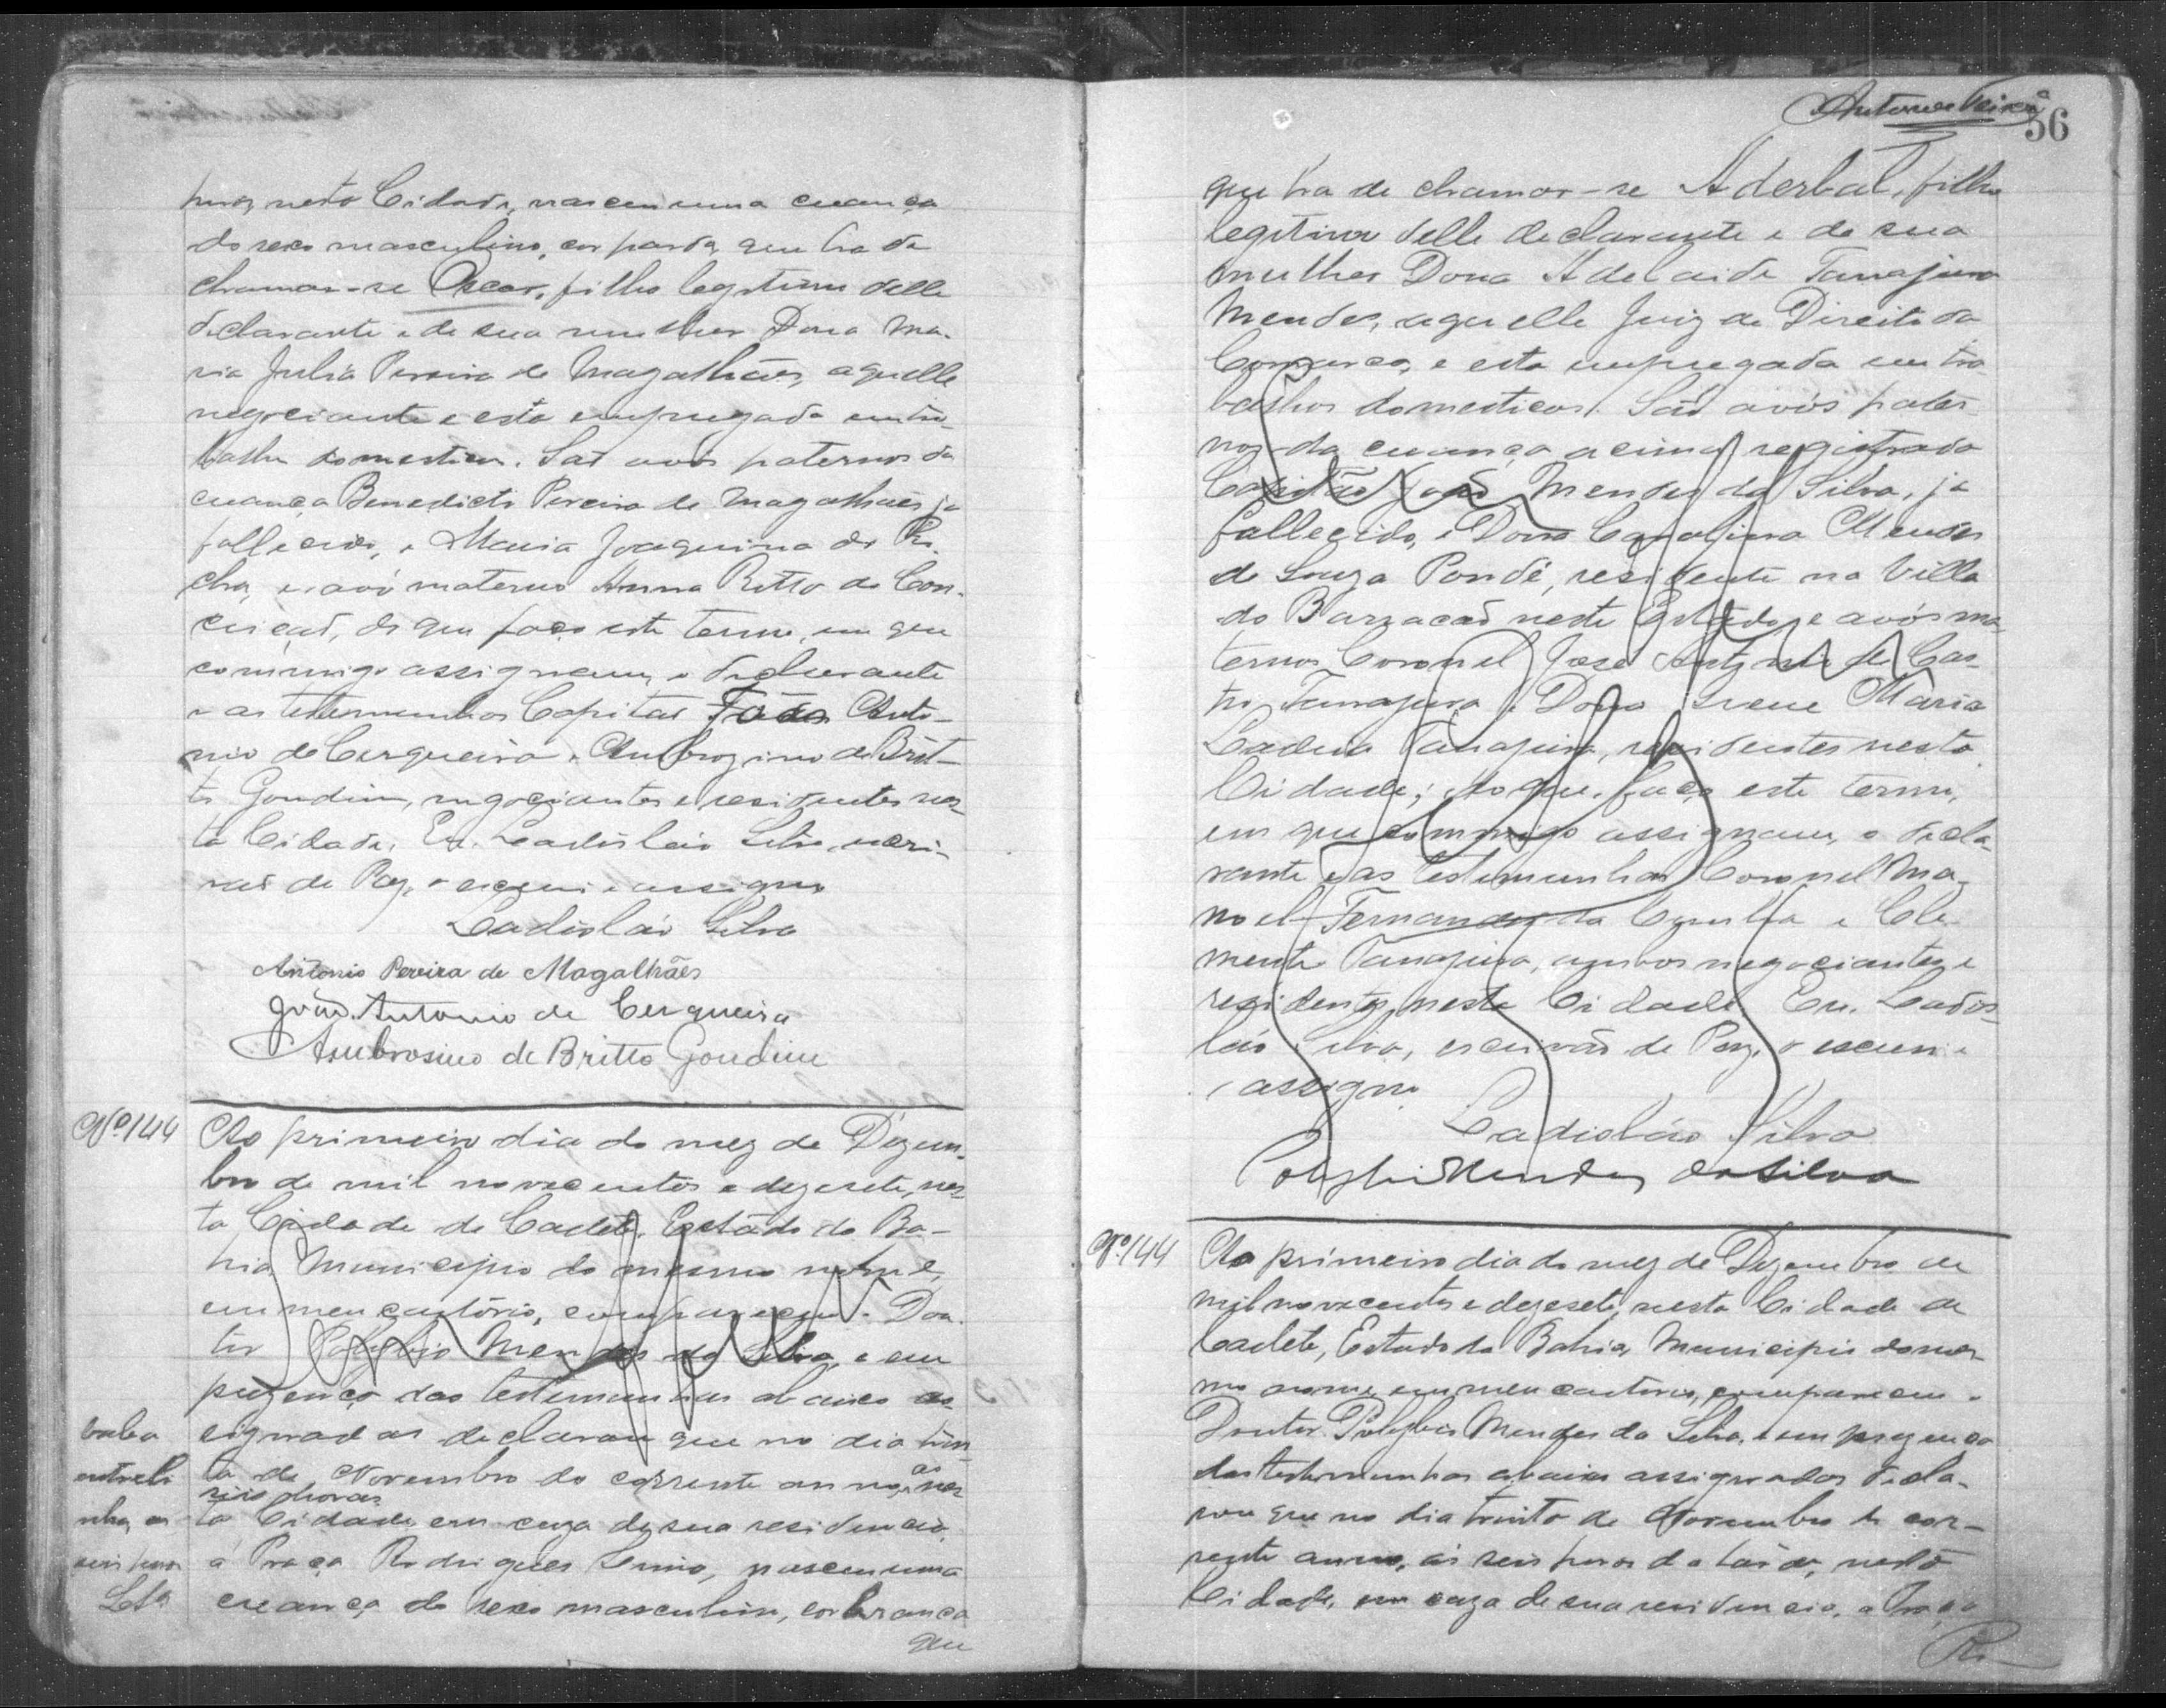 nesta Cidade, nasceu uma creança
do sexo masculino, cor parda, que ha de
chamar-se Oscar, filho legitimo delle
declarante e de sua mulher Dona Ma-
ria Julia Pereira de Magalhães, aquelle
negociante e esta empregada em tra-
balho domestico. São avós paternos da
creança Benedicto Pereira de Magalhães já
fallecido, e Maria Joaquina da Ro-
cha, e avó materna Anna Ritta da Con-
ceição, do que faço este termo, em que
commigo assignam, o declarante
e as testemunhas Capitão João Anto-
nio de Cerqueira e Ambrozino de Brit-
to Gondim, negociantes e residentes nes-
ta Cidade. Eu, Ladisláo Silva, escri-
vão de Paz, o escrevi e assigno
Ladisláo Silva
Antonio Pereira de Magalhães
João Antonio de Cerqueira
Ambrosino de Britto Gondim
Nº 144
Ao primeiro dia do mez de Dezem-
bro de mil novecentos e dezesete, nes-
ta Cidade de Caeteté, Estado da Ba-
hia, Municipio do mesmo nome,
em meu cartório, compareceu o Dou-
tor Polybio Mendes da Silva, e em
prezença das testemunhas abaixo as-
signadas declarou que no dia trin-
ta de Novembro do corrente anno, ás nes-
seis horas
ta Cidade, em caza de sua residencia,
á Praça Rodrigues Lima, nasceu uma
creança do sexo masculino, cor branca
que
entreli
nha, as
seis horas
Antonio Teixª
56
que ha de chamar-se Aderbal, filho
legitimo delle declarante e de sua
mulher Dona Adelaide Tanajura
Mendes, aquelle Juiz de Direito da
Comarca, e esta empregada em tra-
balhos domesticos. São avós pater-
nos da creança acima registrada
Capitão João Mendes da Silva, já
fallecido, e Dona Carolina Mendes
de Souza Pondé, residente na Villa
do Barracão neste Estado, e avós ma-
ternos Coronel José Antonio de Cas-
tro Tanajura e Dona Irene Maria
Ladeia Tanajura, residentes nesta
Cidade; do que, faço este termo,
em que commigo assignam, o decla-
rante e as testemunhas Coronel Ma-
noel Fernandes da Cunha e Cle-
mente Tanajura, ambos negociantes e
residentes nesta Cidade. Eu, Ladis-
láo Silva, escrivão de Paz, o escrevi e
assigno
Ladisláo Silva
Polybio Mendes da Silva
Nº 144
Ao primeiro dia do mez de Dezembro de
mil novecentos e dezesete, nesta Cidade de
Caeteté, Estado da Bahia, Municipio do mes-
mo nome, em meu cartorio, compareceu o
Doutor Polybio Mendes da Silva, e em prezença
das testemunhas abaixo assignadas decla-
rou que no dia trinta de Novembro do cor-
rente anno, ás seis horas da tarde, nesta
Cidade, em caza de sua residencia, a Praça
Ro-